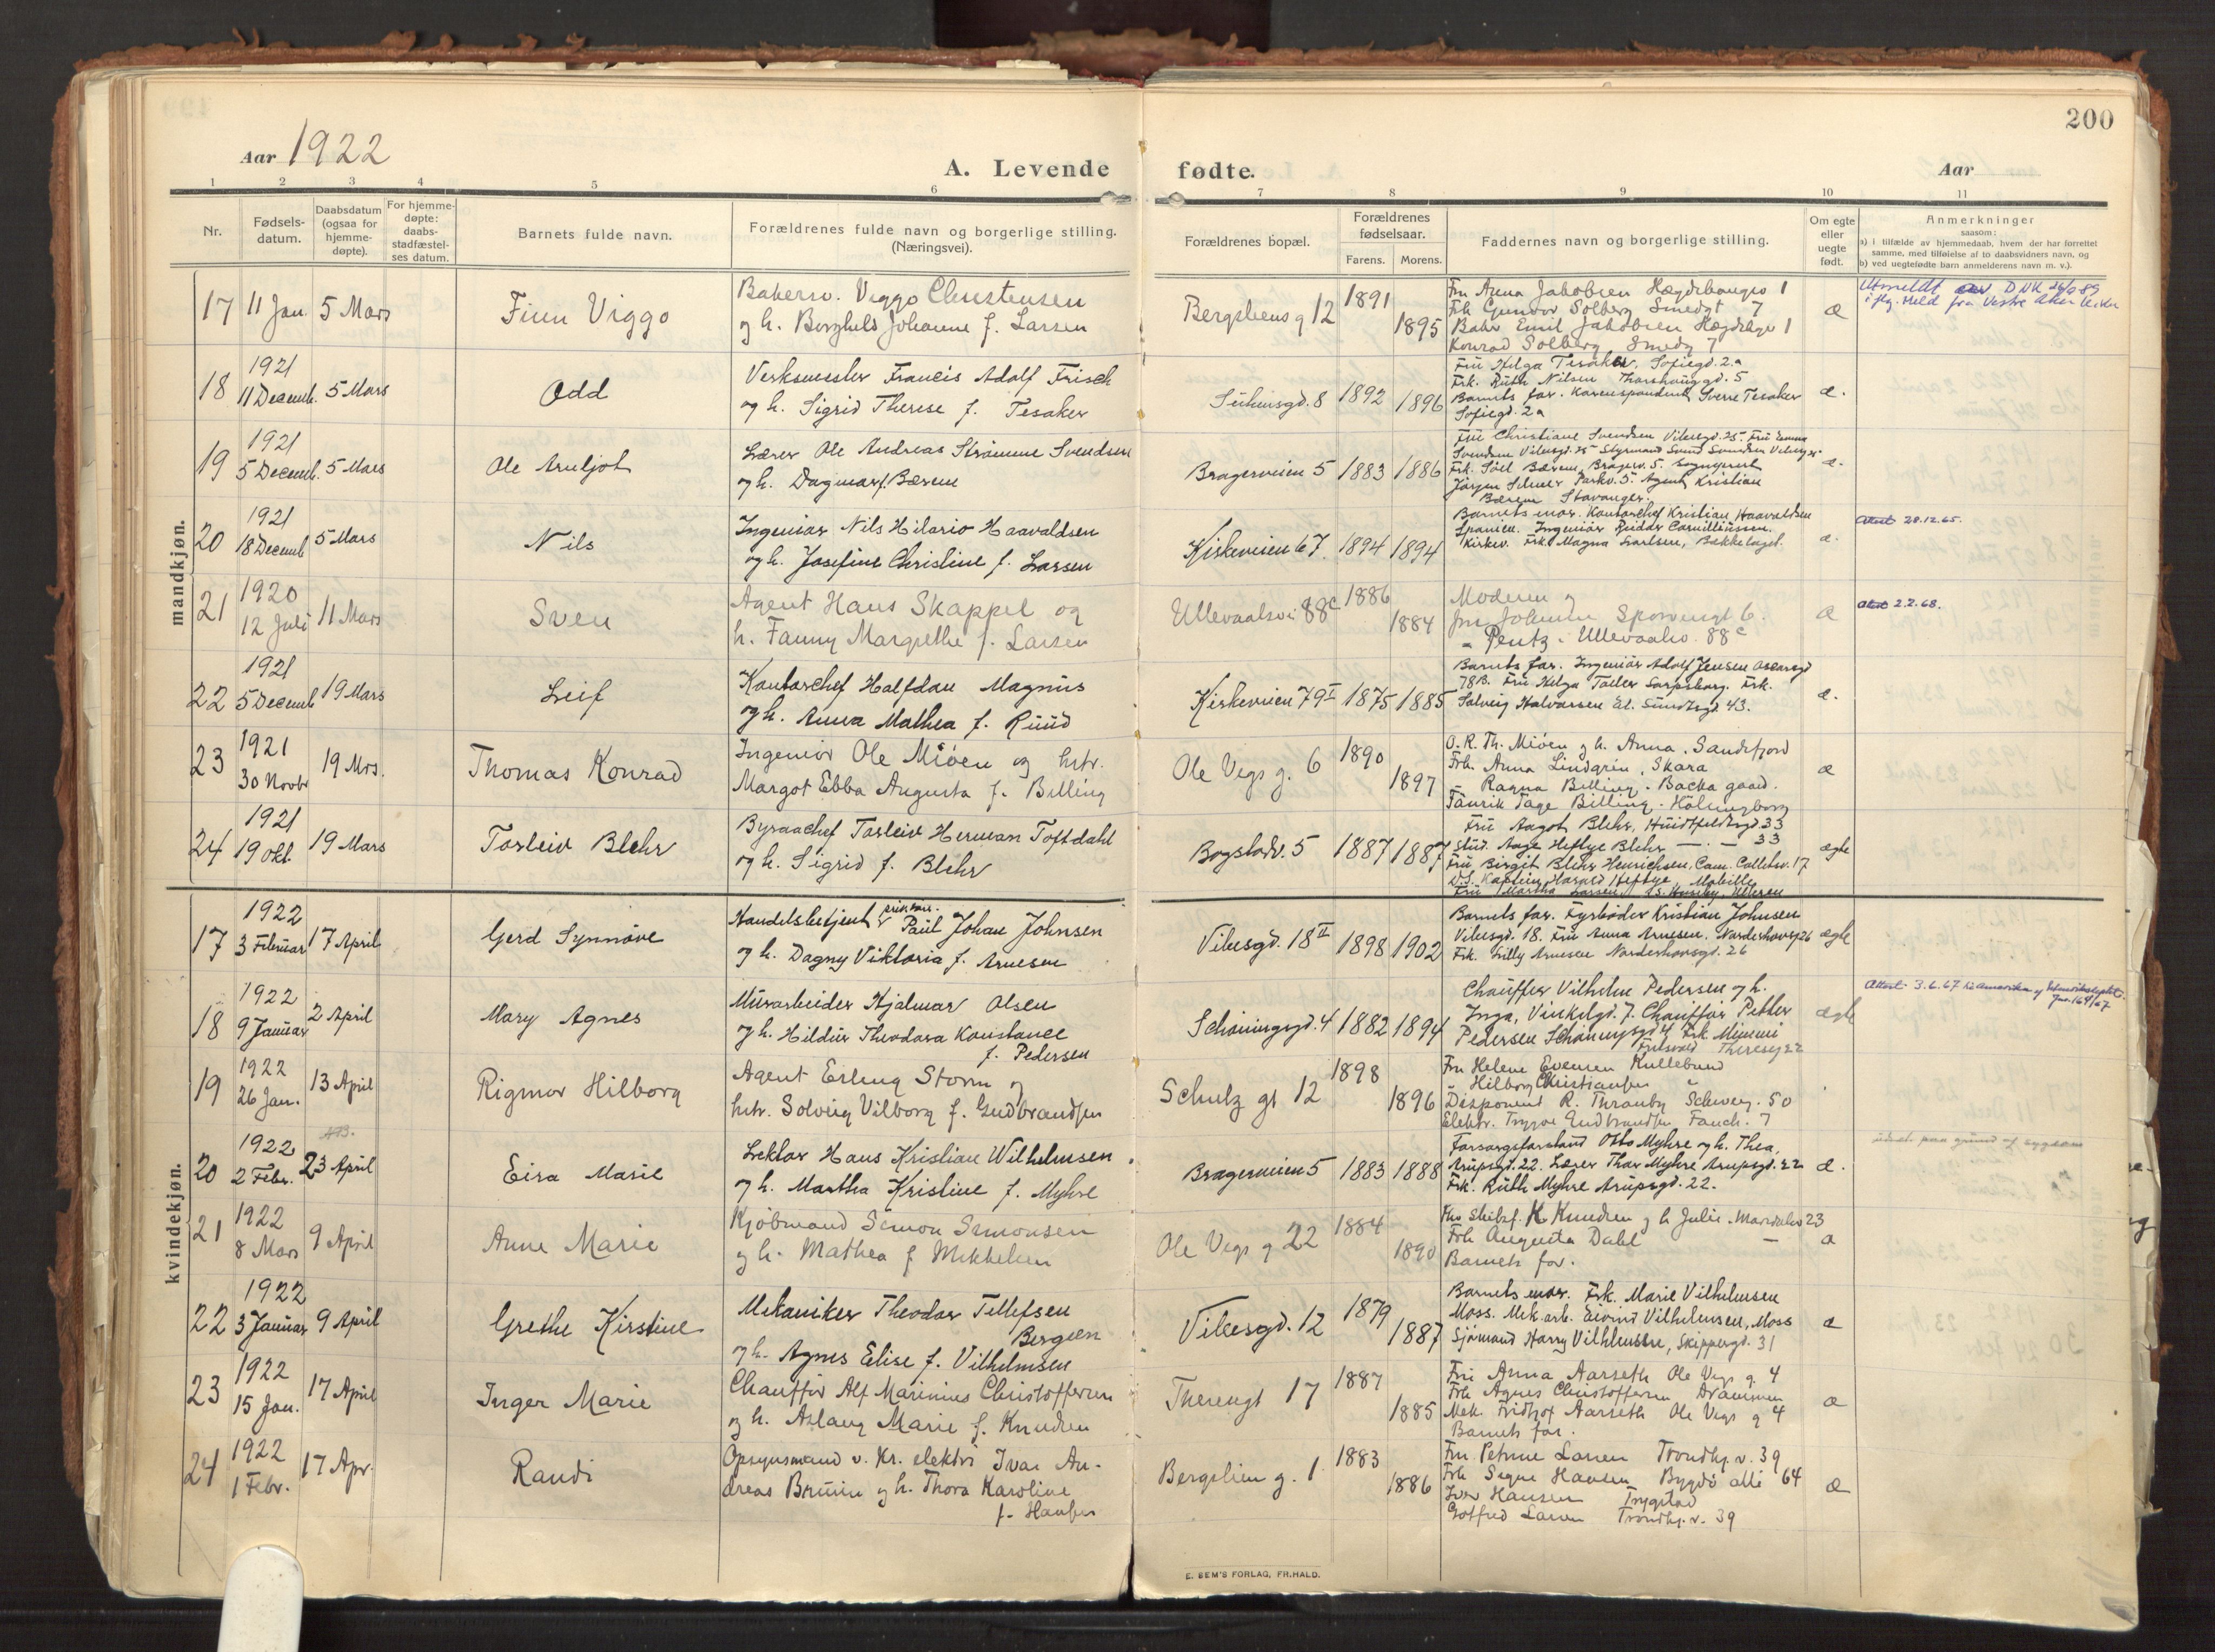 200
Aar 1922
A. Levende
fødte.
Aar
1 2 3 4 5 6 7 8 9 10 11
Nr.
Fødsels-
datum.
Daabsdatum
(ogsaa for
hjemme-
døpte).
For hjemme-
døpte:
daabs-
stadfæstel-
ses datum.
Barnets fulde navn.
Forældrenes fulde navn og borgerlige stilling.
(Næringsvei).
Forældrenes bopæl.
Forældrenes
fødselsaar.
Farens. Morens.
Faddernes navn og borgerlige stilling.
Om egte
eller
uegte
født.
Anmerkninger
saasom:
a) i tilfælde av hjemmedaab, hvem der har forrettet
samme, med tilføielse af to daabsvidners navn, og
b) ved uegtefødte barn anmelderens navn m. v.).
mandkjøn.
17 11 Jan. 5 Mars
Finn Viggo
Bakersv. Viggo Christensen
og h. Borghild Johanne f. Larsen
Bergsliens g 12 1891 1895
Fru Anna Jakobsen Hægdehaugsv 1
Frk Gunvor Solberg Smedgt 7
Baker Emil Jakobsen Hægdehgv 1
Konrad Solberg Smedg 7
æ
Utmeldt av DNK
18 1921
11 Decemb. 5 Mars
Odd
Verksmester Francis Adolf Frisch
og h. Sigrid Therese f. Tesaker
8 1892 1896
Fru Helga Tesaker, Sofiegd. 2a
Frk. Ruth Nilsen Thorshauggd. 5
Barnets far. Korrespondent Sverre Tesaker
Sofiegd. 2a
æ.
19 1921
5 Decemb. 5 Mars
Ole Arnljot
Lærer Ole Andreas Strømme Svendsen
og h. Dagmar f. Bærem
Bragerveien 5 1883 1886
Fru Christiane Svendsen Vibesgd. 25. Fru Emma
Svendsen Vibesgd. 25 Styrmand Svend Svendsen Vibesg 25
Frk. Bærem Bragerv. 5. Sogneprest
Jørgen Parkv. 5. Agent Kristian
Bærem Stavanger.
æ.
20 1921
18 Decemb 5 Mars
Nils
Ingeniør Nils Hilario Haavaldsen
og h. Josefine Christine f. Larsen
Kirkeveien 67. 1894 1894
Barnets mor. Kontorchef Kristian Haavaldsen
Spanien. Ingeniør Reidar Camilliussen.
Kirkev. Frk. Magna Carlsen, Bækkelaget.
æ.
Attest 20.12.65.
21 1920
12 Juli 11 Mars
Sven
Agent Hans Skappel og
h. Fanny Margrethe f. Larsen
Ullevaalsv. 88c 1886 1884
Moderen og
fru Johnsen 6.
" Pentz. Ullevaalsv. 88c
æ
Attest 2.2.68.
22 1921
5 Decemb 19 Mars
Leif
Kontorchef Halfdan Magnus
og h. Anna Mathea f. Ruud
Kirkeveien 79 I 1875 1885
Barnets far. Ingeniør Adolf Jensen Oscarsgd
78B. Fru Helga Toller Sarpsborg. Frk.
Solveig Halvorsen El. Sundtsgd. 43.
æ.
23 1921
30 Novbr 19 Mrs.
Thomas Konrad
Ingeniør Ole Miøen og hstr.
Margot Ebba Augusta f. Billing
Ole Vigs g. 6 1890 1897
O. R. Th. Miøen og h. Anna. Sandefjord
Frk. Anna Lindgrin, Skara
" Ragna Billing. Backa gaard.
Fänrik Tage Billing. Hälsingborg
æ
24 1921
19 Okt. 19 Mars
Torleiv Blehr
Byraachef Torleiv Herman Toftdahl
og h. Sigrid f. Blehr
Bogstadv. 5 1887 1887
Fru Aagot Blehr, Huidtfeldtsgd. 33
Stud. Aage Heftye Blehr — " — 33
Fru Birgit Blehr Henrichsen, Cam. Colletsv. 17
D.S. Kaptein Harald Heftye Moleville
Fru Martha Larsen, Ullern
ægte
kvindekjøn.
17 1922
3 Februar 17 April
Gerd Synnøve
Handelsbetjent Paul Johan Johnsen
og h. Dagny Viktoria f. Arnesen
Vibesgd. 18 II 1898 1902
Barnets far. Fyrbøder Kristian Johnsen
Vibesgd. 18. Fru Anna Arnesen. Norderhovsg 26
Frk. Lilly Arnesen Norderhovsgd. 26
ægte
18 1922
9 Januar 2 April
Mary Agnes
Murarbeider Hjalmar Olsen
og h. Hildur Theodora Konstance
f. Pedersen
Schøningsgd. 4 1882 1894
Chauffør Vilhelm Pedersen og h.
Inga, Vinkelgd. 7. Chauffør Petter
Pedersen Schøningsgd 4 Frk. Mimmi
Theresg 22
ægte
Attest 3.6.67 til Amerika
19 1922
26 Jan. 13 April
Rigmor Hilborg
Agent Erling Storm og
hstr. Solveig Vilborg f. Gudbrandsen
Schulz gt 12 1898 1896
Fru Helene Evensen Kullebund
" Hilborg Christiansen "
Disponent R. Thranby Schweig. 50
Elektr. Trygve Gudbrandsen Fauch. 7
20 1922
2 Febr. 23 April
Eira Marie
Lektor Hans Kristian Wilhelmsen
og h. Martha Kristine f. Myhre
Bragerveien 5 1883 1888
Forsorgsforstand Otto Myhre og h. Thea,
Arupsgd. 22. Lærer Thor Myhre Arupsgd. 22
Frk. Ruth Myhre Arupsgd. 22.
æ.
paa grund af sygdom
21 1922
8 Mars 9 April
Anne Marie
Kjøbmand Simon Simonsen
og h. Mathea f Mikkelsen
Ole Vigs g 22 1884 1890
K Knudsen og h Julie. Maridalsv 23
Frk Augusta Dahl —
Barnets far.
æ
22 1922
3 Januar 9 April
Grethe Kirstine
Mekaniker Theodor Tellefsen
Bergeen
og h. Agnes Elise f. Vilhelmsen
Vibesgd. 12 1879 1887
Barnets mor. Frk. Marie Vilhelmsen
Moss. Mek. arb. Eivind Vilhelmsen, Moss
Sjømand Harry Vilhelmsen, Skippergd. 31
æ
23 1922
15 Jan. 17 April
Inger Marie
Chauffør Alf Marinius Christoffersen
og h. Aslaug Marie f. Knudsen
Theresgt 17 1887 1885
Fru Anna Aarseth Ole Vigs g. 4
Frk Agnes Christoffersen Drammen
Mek. Fridthof Aarseth Ole Vigs g 4
Barnets far.
æ
24 1922
1 Febr. 17 Apr.
Randi
Opsynsmand v. Kr. elektri Ivar An-
dreas Bruun og h. Thora Karoline
f. Hansen
Bergslien g. 1 1883 1886
Fru Petrine Larsen Trondhj. v. 39
Frk Signe Hansen Bygdø alle 64
Iver Hansen Trygstad
Gotfred Larsen Trondhj. v. 39
æ
E. SEM'S FORLAG, FR.HALD.